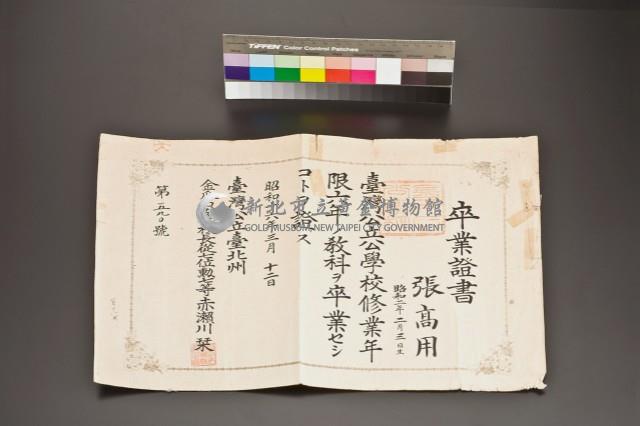 TIFFEN Color Control Patches
卒業證書
張高用
昭和二年二月三日生
臺灣公立公學校修業年
限六年ノ教科ヲ卒業セシ
コトヲ證ス
昭和 六年三月 十二日
臺灣公立臺北州
校長從七位勳七等赤瀨川 栞
第五九〇號
新北市立黃金博物館
GOLD MUSEUM, NEW TAIPEI CITY GOVERNMENT